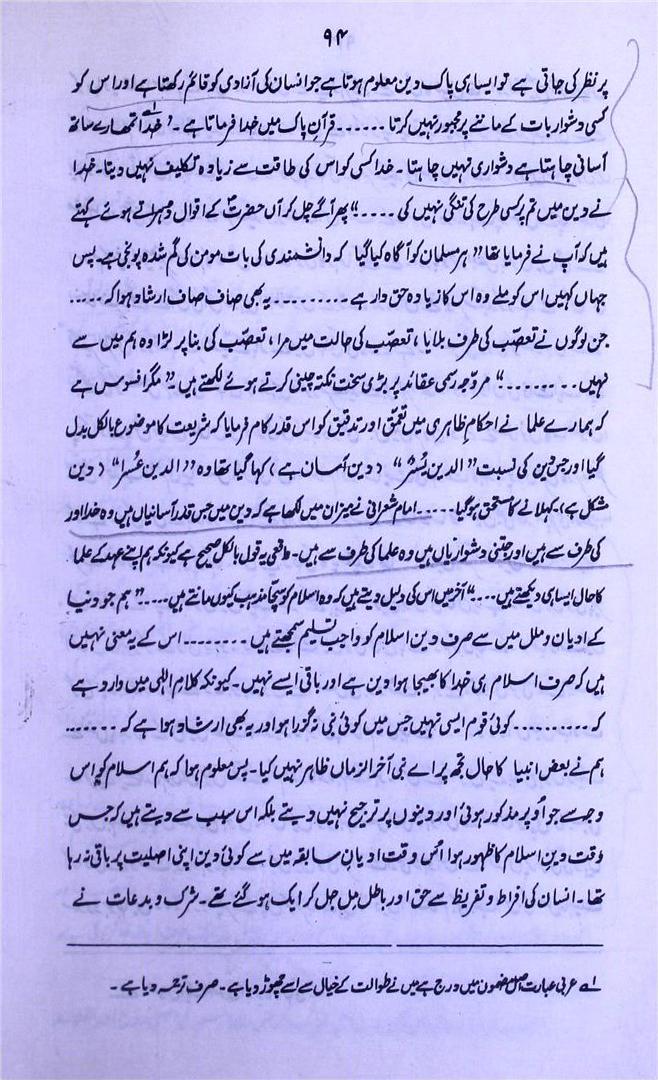 ۹۴
پر نظر کی جاتی ہے تو ایسا ہی پاک دین معلوم ہوتا ہے جو انسان کی آزادی کو قائم رکھتا ہے اور اس کو
کسی دشوار بات کے ماننے پر مجبور نہیں کرتا ...... قرآن پاک میں خدا فرماتا ہے۔ ”خدا لے تمھارے ساتھ
آسانی چاہتا ہے دشواری نہیں چاہتا۔ خدا کسی کو اس کی طاقت سے زیادہ تکلیف نہیں دیتا۔ خدا
نے دین میں تم پر کسی طرح کی تنگی نہیں کی ....“ پھر آگے چل کر آں حضرتؐ کے اقوال دہراتے ہوئے کہتے
ہیں کہ آپ نے فرمایا تھا ”ہر مسلمان کو آگاہ کیا گیا کہ دانشمندی کی بات مومن کی گم شدہ پونجی ہے۔ پس
جہاں کہیں اس کو ملے وہ اس کا زیادہ حق دار ہے ......... یہ بھی صاف صاف ارشاد ہوا کہ .....
جن لوگوں نے تعصّب کی طرف بلایا، تعصّب کی حالت میں مرا، تعصّب کی بنا پر لڑا وہ ہم میں سے
نہیں ........“ مروّجہ رسمی عقائد پر بڑی سخت نکتہ چینی کرتے ہوئے لکھتے ہیں۔ ”مگر افسوس ہے
کہ ہمارے علما نے احکامِ ظاہری میں تعمّق اور تدقیق کو اس قدر کام فرمایا کہ شریعت کا موضوع بالکل بدل
گیا اور جس دین کی نسبت ”الدین یُسرٌ“ (دین آسان ہے) کہا گیا تھا وہ ”الدین عُسرٌ“ (دین
مشکل ہے)۔ کہلانے کا مستحق ہو گیا ..... امام شعرانی نے میزان میں لکھا ہے کہ دین میں جس قدر آسانیاں ہیں وہ خدا اور
کی طرف سے ہیں اور جتنی دشواریاں ہیں وہ علما کی طرف سے ہیں۔ واقعی یہ قول بالکل صحیح ہے کیونکہ ہم اپنے عہد کے علما
کا حال ایسا ہی دیکھتے ہیں ....“ آخر میں اس کی دلیل دیتے ہیں کہ وہ اسلام کو سچّا مذہب کیوں مانتے ہیں ....“ ہم جو دنیا
کے ادیان و ملل میں سے صرف دین اسلام کو واجب تسلیم سمجھتے ہیں ........ اس کے یہ معنی نہیں
ہیں کہ صرف اسلام ہی خدا کا بھیجا ہوا دین ہے اور باقی ایسے نہیں۔ کیونکہ کلام الٰہی میں وارد ہے
کہ ......... کوئی قوم ایسی نہیں جس میں کوئی نبی نہ گزرا ہو اور یہ بھی ارشاد ہوا ہے کہ .......
ہم نے بعض انبیا کا حال تجھ پر اے نبی آخر الزماں ظاہر نہیں کیا۔ پس معلوم ہوا کہ ہم اسلام کو اس
وجہ سے جو اُوپر مذکور ہوئی اور دینوں پر ترجیح نہیں دیتے بلکہ اس سبب سے دیتے ہیں کہ جس
وقت دینِ اسلام کا ظہور ہوا اُس وقت ادیانِ سابقہ میں سے کوئی دین اپنی اصلیت پر باقی نہ رہا
تھا۔ انسان کی افراط و تفریط سے حق اور باطل مل جل کر ایک ہو گئے تھے۔ شرک و بدعات نے
لے عربی عبارت اصل مضمون میں درج ہے میں نے طوالت کے خیال سے اسے چھوڑ دیا ہے۔ صرف ترجمہ دیا ہے۔